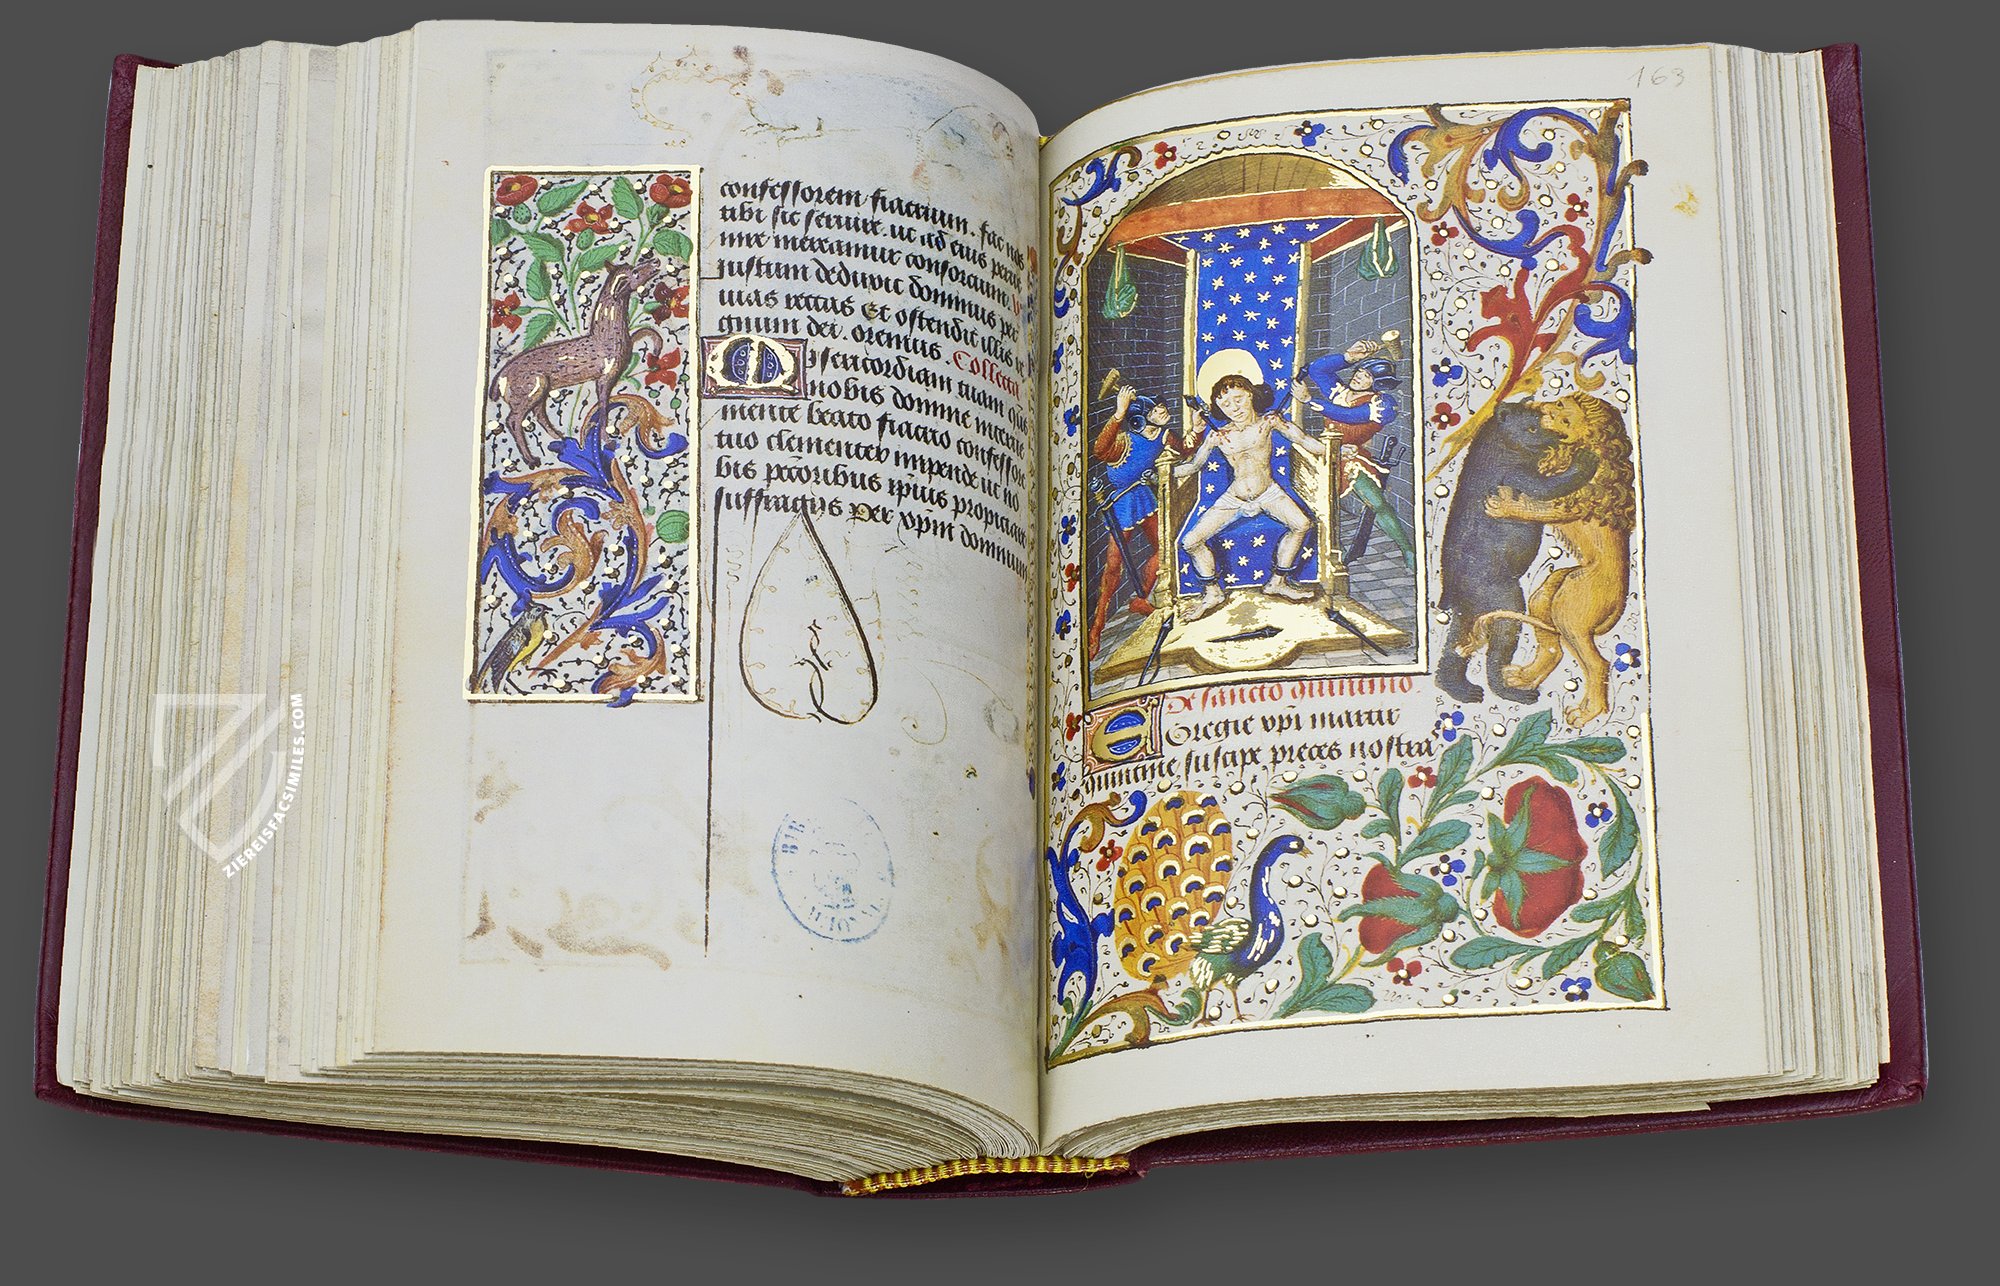 confessorem fiacrium. fac nos
tibi sic seruire. ut ad eius peruē
nire mereamur consorcium. V
justum deduxit dominus per
uias rectas Et ostendit illi re
gnum dei. oremus. Collecta
Misericordiam tuam
nobis domine
mente beato fiacrio confessore
tuo clementer impende ut no
bis peccoribus ipsius propiciare
suffragiis Per xpm dominum
163
De sancto quintino.
Egregie xpi martir
quintine suscipe preces nostra
ZIEREISFACSIMILES.COM